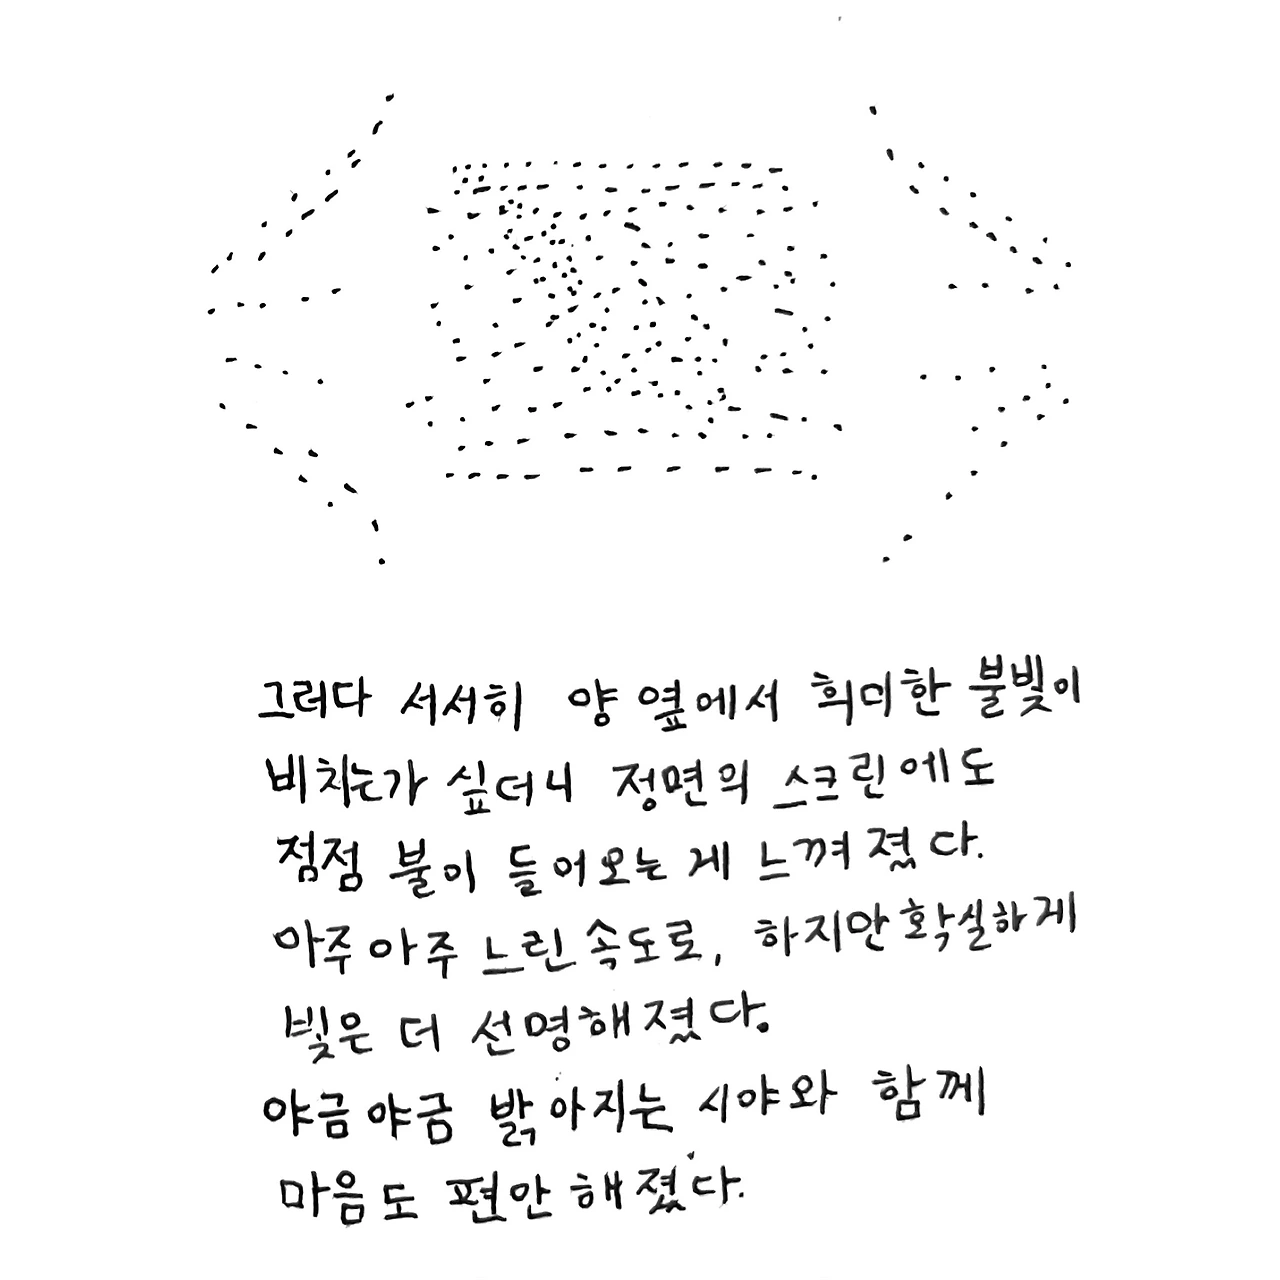 그러다 서서히 양 옆에서 희미한 불빛이
비치는가 싶더니 정면의 스크린에도
점점 불이 들어오는 게 느껴졌다.
아주 아주 느린 속도로, 하지만 확실하게
빛은 더 선명해졌다.
야금야금 밝아지는 시야와 함께
마음도 편안해졌다.